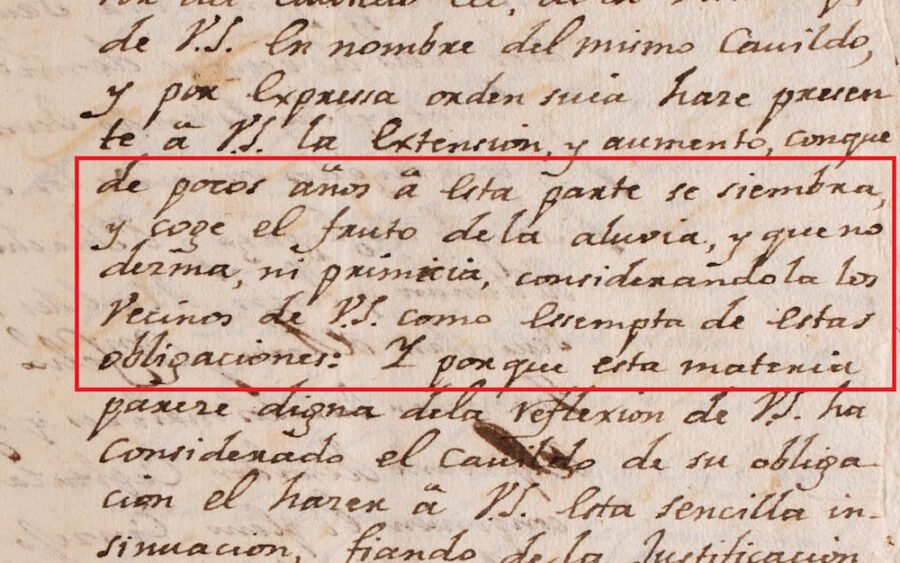 de V.S. En nombre del mismo Cavildo,
y por Expressa orden suia haze presen
te â V.S. la Extension, y aumento, conque
de pocos años â Esta parte se siembra,
y coge el fruto de la aluvia, y que no
dezma, ni primicia, considerandola los
Vecinos de V.S. como Essempta de estas
obligaciones: Y porque esta materia
pareze digna dela reflexion de V.S. ha
considerado el cavildo de su obliga
cion el hazer â V.S. Esta sencilla in-
sinuacion, fiando de la Justificacion